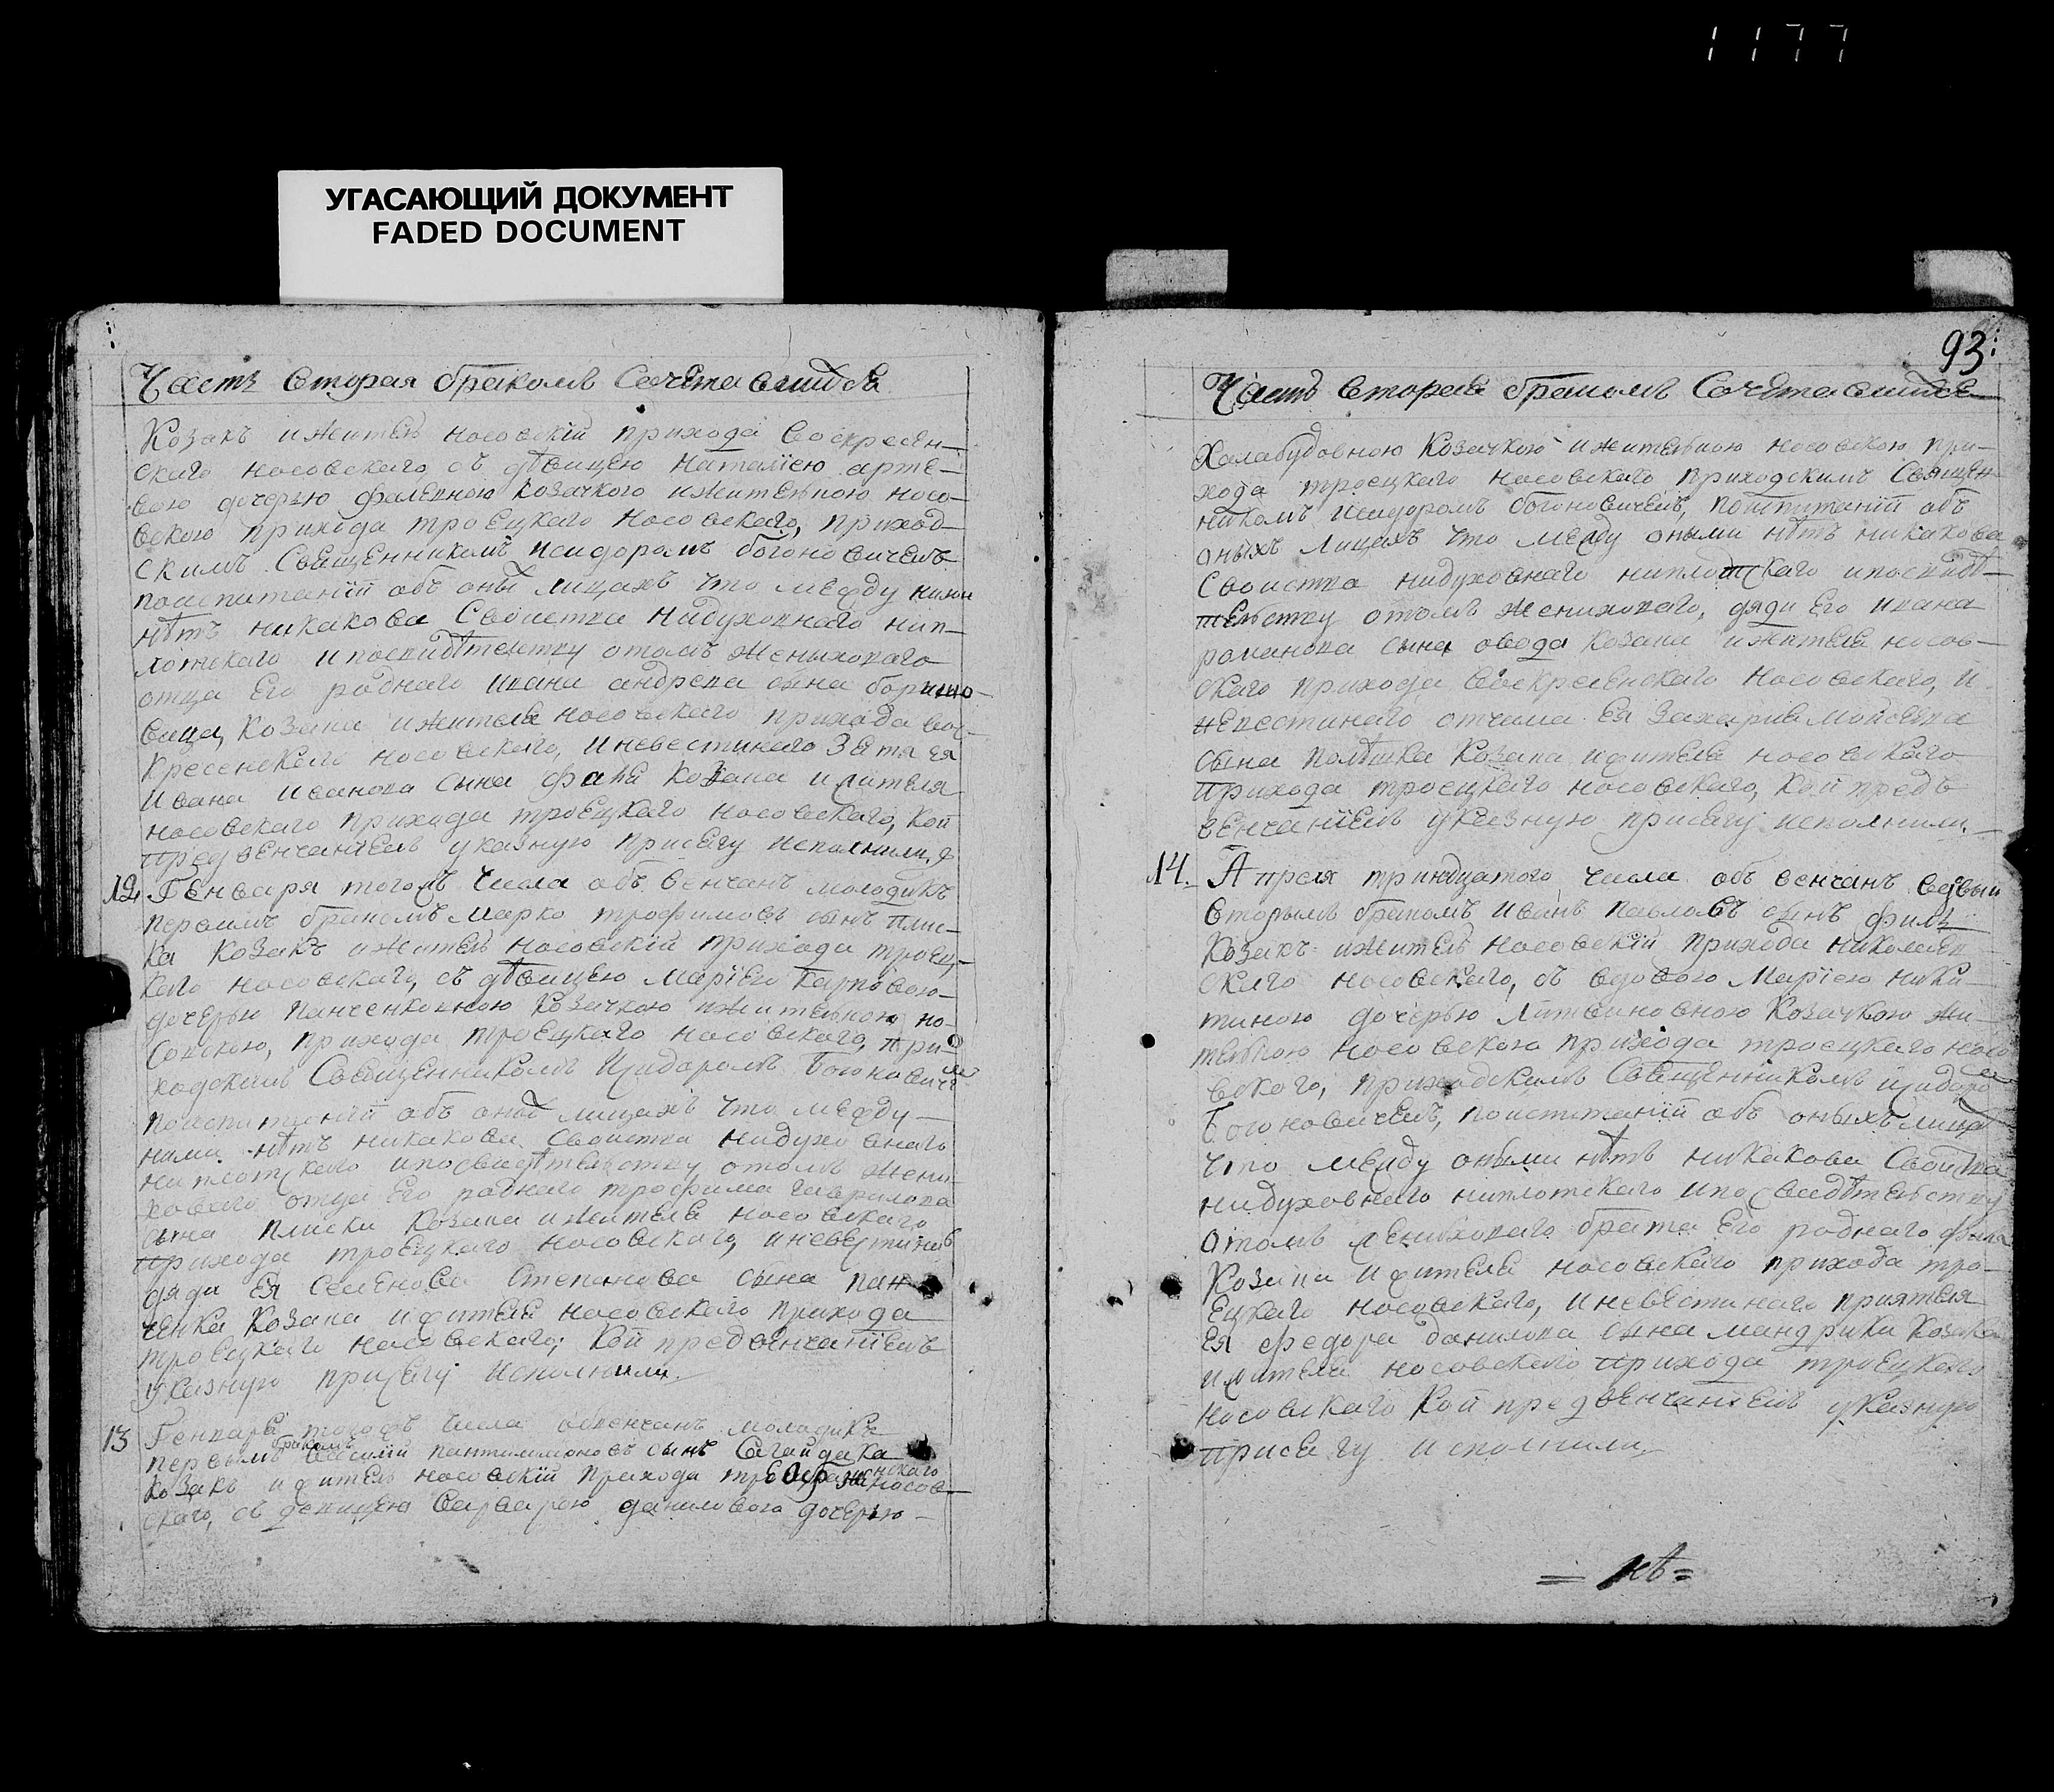 1177
УГАСАЮЩИЙ ДОКУМЕНТ
FADED DOCUMENT
Часть вторая бракомъ Сочетавшихся
Козакъ и житель носовскій прихода воскресен-
скаго носовскаго, съ дѣвицею Наталіею арте-
вою дочерью козачкою и жителкою носо-
вскою прихода троецкаго носовскаго, приход-
скимъ Священникомъ исидоромъ богоновичемъ
поиспитаній объ оны лицахъ что между ними
нѣтъ никакова Своиства нидуховнаго нип-
лотскаго и посвидѣтелству отомъ жениховаго
отца Его роднаго ивана андреева сына
Козака и жителя носовскаго прихода вос-
кресенскаго носовскаго, и невестинаго Зятя ея
ивана иванова сына Козака и жителя
носовскаго прихода троецкаго носовскаго, кои
предвенчаніемъ указную присягу исполнили
12. Генваря тогожъ числа объ венчанъ молодикъ
первымъ бракомъ Марко трофимовъ сынъ плис-
ка козакъ и житель носовскій прихода троец-
каго носовскаго, съ дѣвицею Маріею карповою
дочерью панченковною козачкою и жителкою но-
совскою, прихода троецкаго носовскаго, при-
ходскимъ Священникомъ Исидоромъ Богоновиче
поиспитаній объ оны лицахъ что между
ними нѣтъ никакова своиства нидуховнаго
ниплотскаго и посвидѣтелству отомъ жени-
ховаго отца Его роднаго трофима гаврилова
сына плиски козака и жителя носовскаго
прихода троецкаго носовскаго, и невестинаго
дяди Ея Семенова Степанова сына пан-
ченка козака и жителя носовскаго прихода
троецкаго носовскаго, кои предвенчаніемъ
указную присягу исполнили.
13 Генваря тогожъ числа обвенчанъ молодикъ
первымъ бракомъ пантилимоновъ сынъ Сагайдака
козакъ и житель носовскій прихода носов-
скаго, съ девицею варварою даниловою дочерью
93:
Часть вторая бракомъ Сочетавшихся
Халабудовною козачкою и жителкою носовскою при-
хода троецкаго носовскаго приходскимъ Священ-
никомъ исидоромъ богоновичемъ, поиспитаній объ
оныхъ лицахъ что между оными нѣтъ никакова
Своиства нидуховнаго ниплотскаго и посвидѣ-
телству отомъ жениховаго, дяди Его ивана
романова сына овода козака и жителя носов-
скаго прихода воскресенскаго носовскаго, и
невестинаго отчима Ея Захарія Мойсеева
сына козака и жителя носовскаго
прихода троецкаго носовскаго, кои предъ
венчаніемъ указную присягу исполнили.
14. Апреля тринцатого числа объ венчанъ
вторымъ бракомъ иванъ павловъ сынъ
козакъ и житель носовскій прихода николаев-
скаго носовскаго, съ вдовою Маріею ники-
тиною дочерью Литвиновною козачкою жи-
телкою носовскою прихода троецкаго носо
вскаго, приходскимъ Священникомъ исидоро
Богоновичемъ, поиспитаній объ оныхъ лица
что между оными нѣтъ никакова Своиства
нидуховнаго ниплотскаго и посвидѣтелству
отомъ жениховаго брата Его роднаго
козака и жителя носовскаго прихода тро-
ецкаго носовскаго, и невестинаго приятеля
Ея федора данилова сына мандрики козака
и жителя носовскаго прихода троецкаго
носовскаго кои предвенчаніемъ указную
присягу исполнили